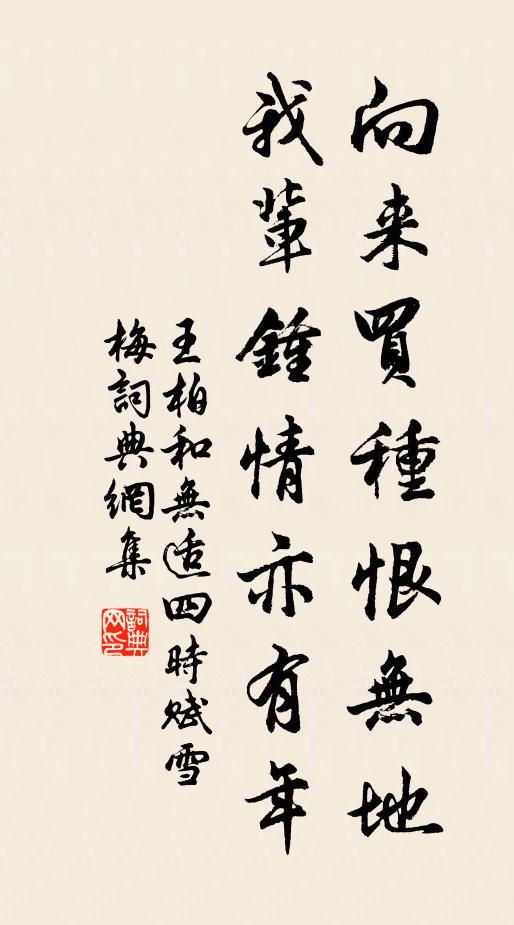 向来買種恨無地
我輩鍾情亦有年
王柏和無适四時賦雪
梅詞典網集
詞典網印